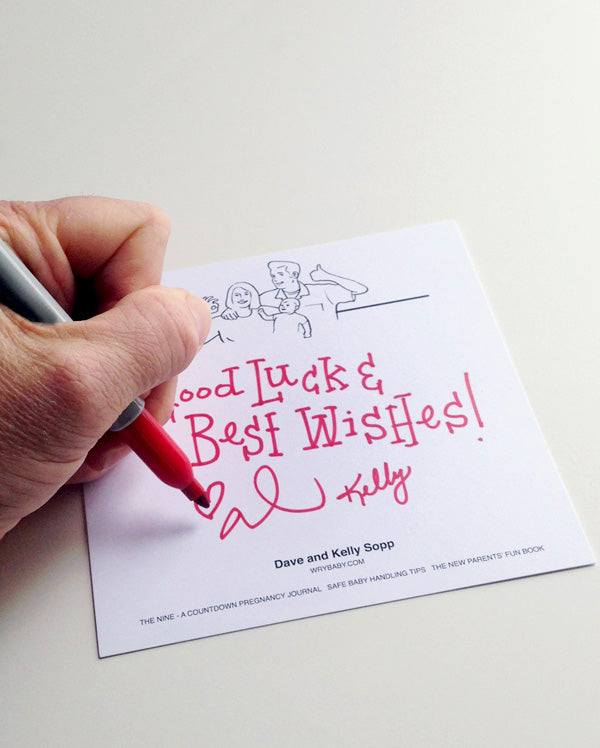 Good Luck &
Best Wishes!
Kelly
Dave and Kelly Sopp
WRYBABY.COM
THE NINE - A COUNTDOWN PREGNANCY JOURNAL SAFE BABY HANDLING TIPS THE NEW PARENTS' FUN BOOK